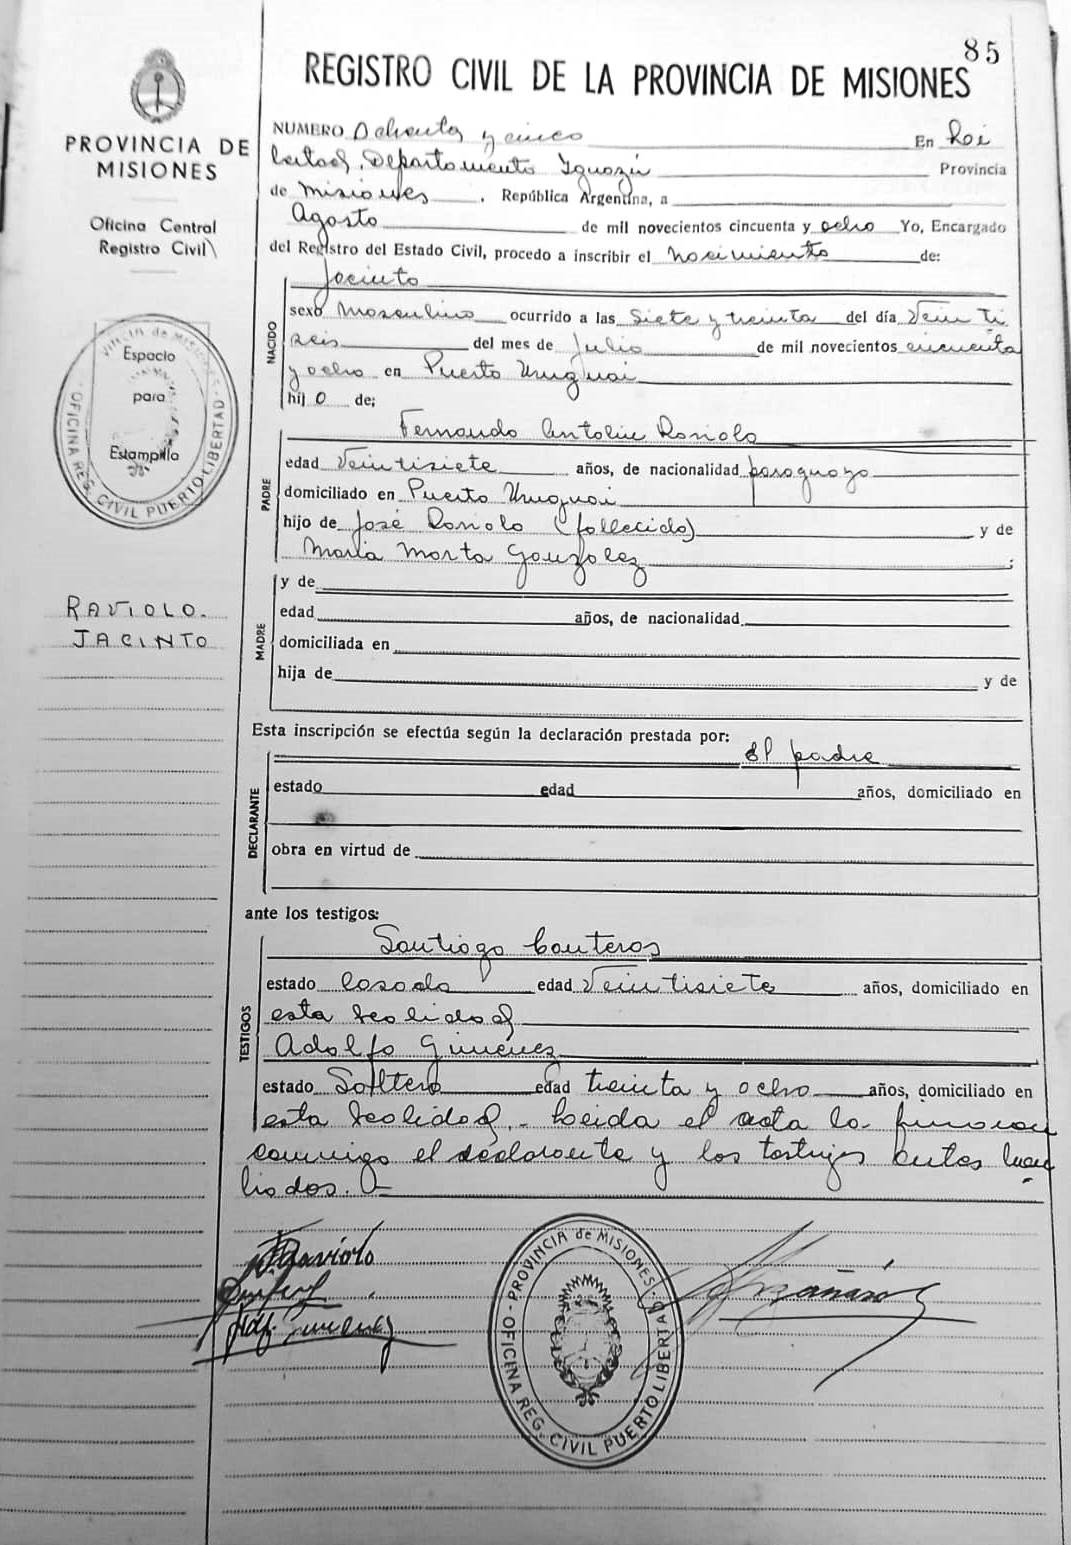 85
REGISTRO CIVIL DE LA PROVINCIA DE MISIONES
PROVINCIA DE
MISIONES
Oficina Central
Registro Civil
Espacio
para
Estampilla
OFICINA REG. CIVIL PUERTO LIBERTAD
RAVIOLO.
JACINTO
NUMERO Ochenta y cinco En
bertad, Departamento Iguazú Provincia
de Misiones, República Argentina, a
Agosto de mil novecientos cincuenta y ocho Yo, Encargado
del Registro del Estado Civil, procedo a inscribir el nacimiento de:
NACIDO
Jacinto
sexo Masculino ocurrido a las siete y treinta del día Veinti
seis del mes de Julio de mil novecientos cincuenta
y ocho en Puerto Uruguai
hijo de;
PADRE
Fernando Antolin Raviolo
edad Veintisiete años, de nacionalidad paraguayo
domiciliado en Puerto Uruguai
hijo de José Raviolo (fallecido) y de
Maria Marta Gonzalez;
MADRE
y de
edad años, de nacionalidad
domiciliada en
hija de y de
Esta inscripción se efectúa según la declaración prestada por:
DECLARANTE
El padre
estado edad años, domiciliado en
obra en virtud de
ante los testigos:
TESTIGOS
Santiago Canteros
estado Casado edad Veintisiete años, domiciliado en
esta localidad
Adolfo Gimenez
estado Soltero edad treinta y ocho años, domiciliado en
esta localidad.- Leida el acta la firman
conmigo el declarante y los testigos antes
Raviolo
Adf. Gimenez
OFICINA REG. CIVIL PUERTO LIBERTAD - PROVINCIA de MISIONES